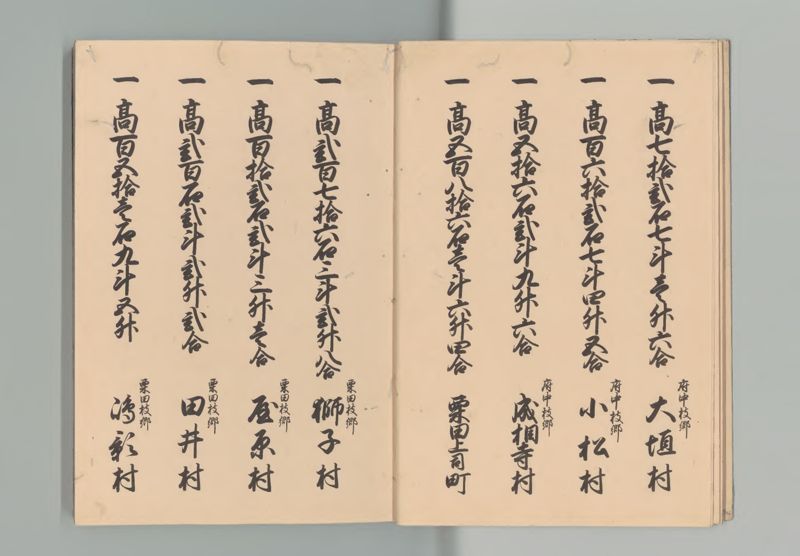 一 高七拾弐石七斗壱升六合
府中枝郷
大垣村
一 高百六拾弐石七斗四升五合
府中枝郷
小松村
一 高五拾六石弐斗九升六合
府中枝郷
成相寺村
一 高五百八拾六石壱斗六升四合
栗田上司町
一 高弐百七拾六石三斗弐升八合
栗田枝郷
獅子村
一 高百拾弐石弐斗三升壱合
栗田枝郷
原村
一 高弐百石弐斗弐升弐合
栗田枝郷
田井村
一 高百五拾壱石九斗五升
栗田枝郷
村